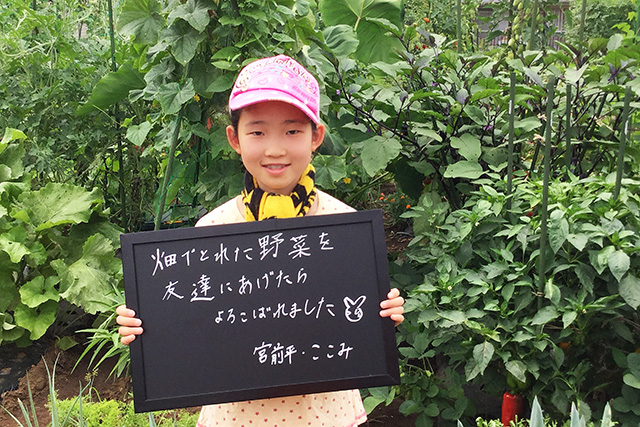 畑でとれた野菜を
友達にあげたら
よろこばれました
宮前平・ここみ